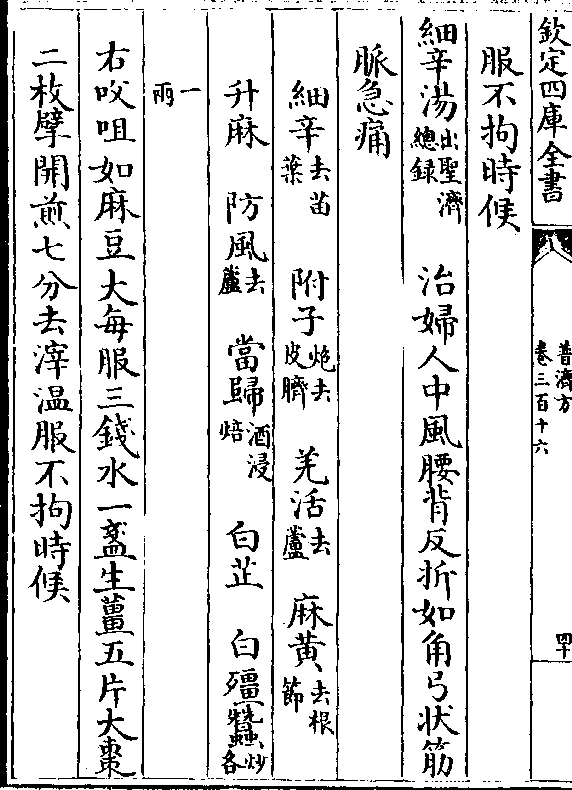 欽定四庫全書
普濟方
卷三百十六
四十
服不拘時候
細辛湯出聖濟總録 治婦人中風腰背反折如角弓狀筋
脈急痛
細辛去苗葉 附子炮去皮臍 羌活去蘆 麻黄去根節
升麻 防風去蘆 當歸酒浸焙 白芷 白殭蠶炒各
一兩
右㕮咀如麻豆大每服三錢水一盞生薑五片大棗
二枚擘開煎七分去滓温服不拘時候